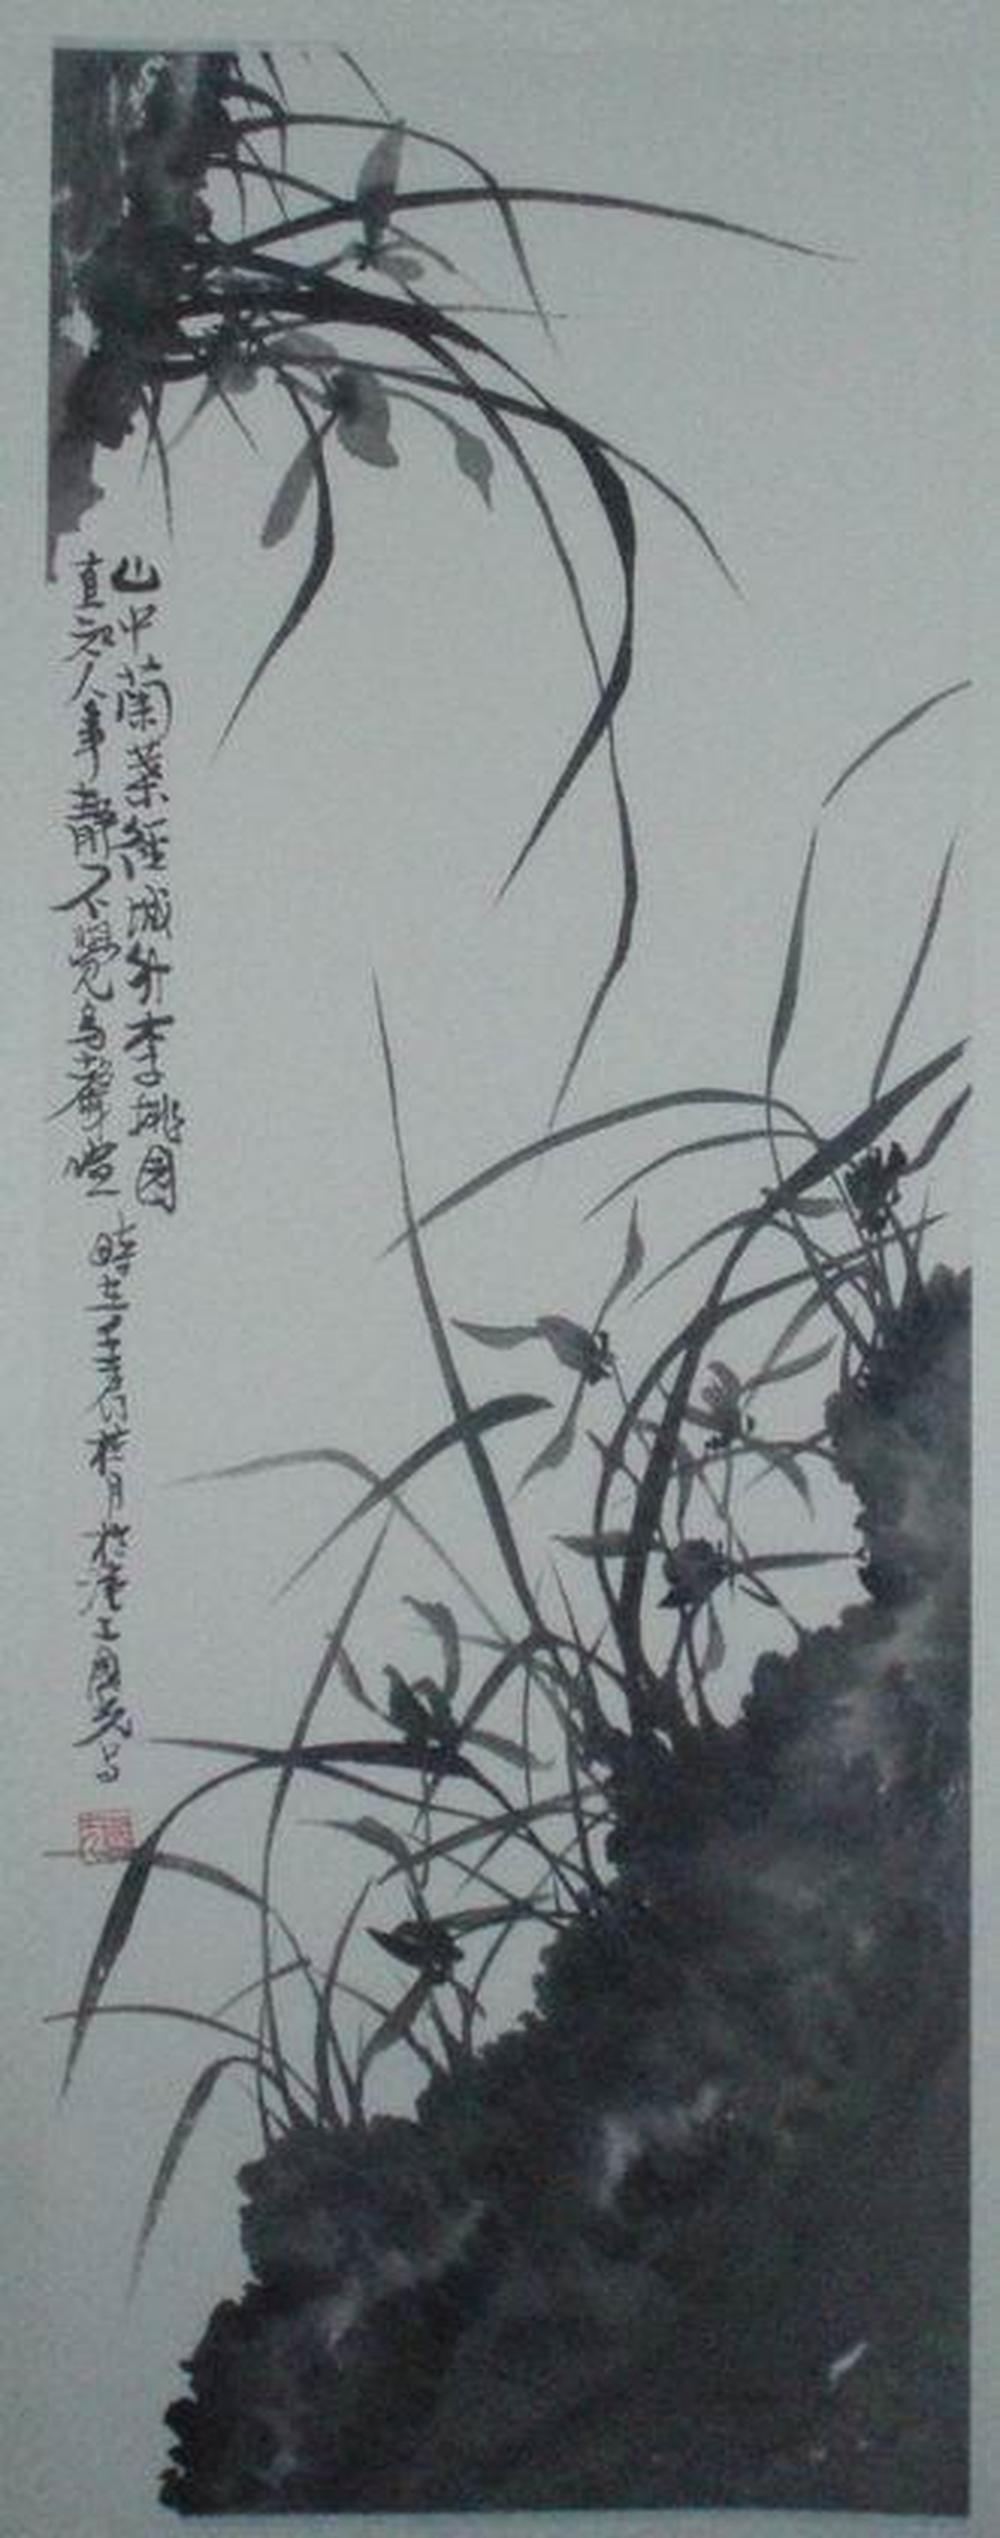 山中蘭葉徑城外李桃園
直知人事靜不覺鳥聲喧
時在
桂月